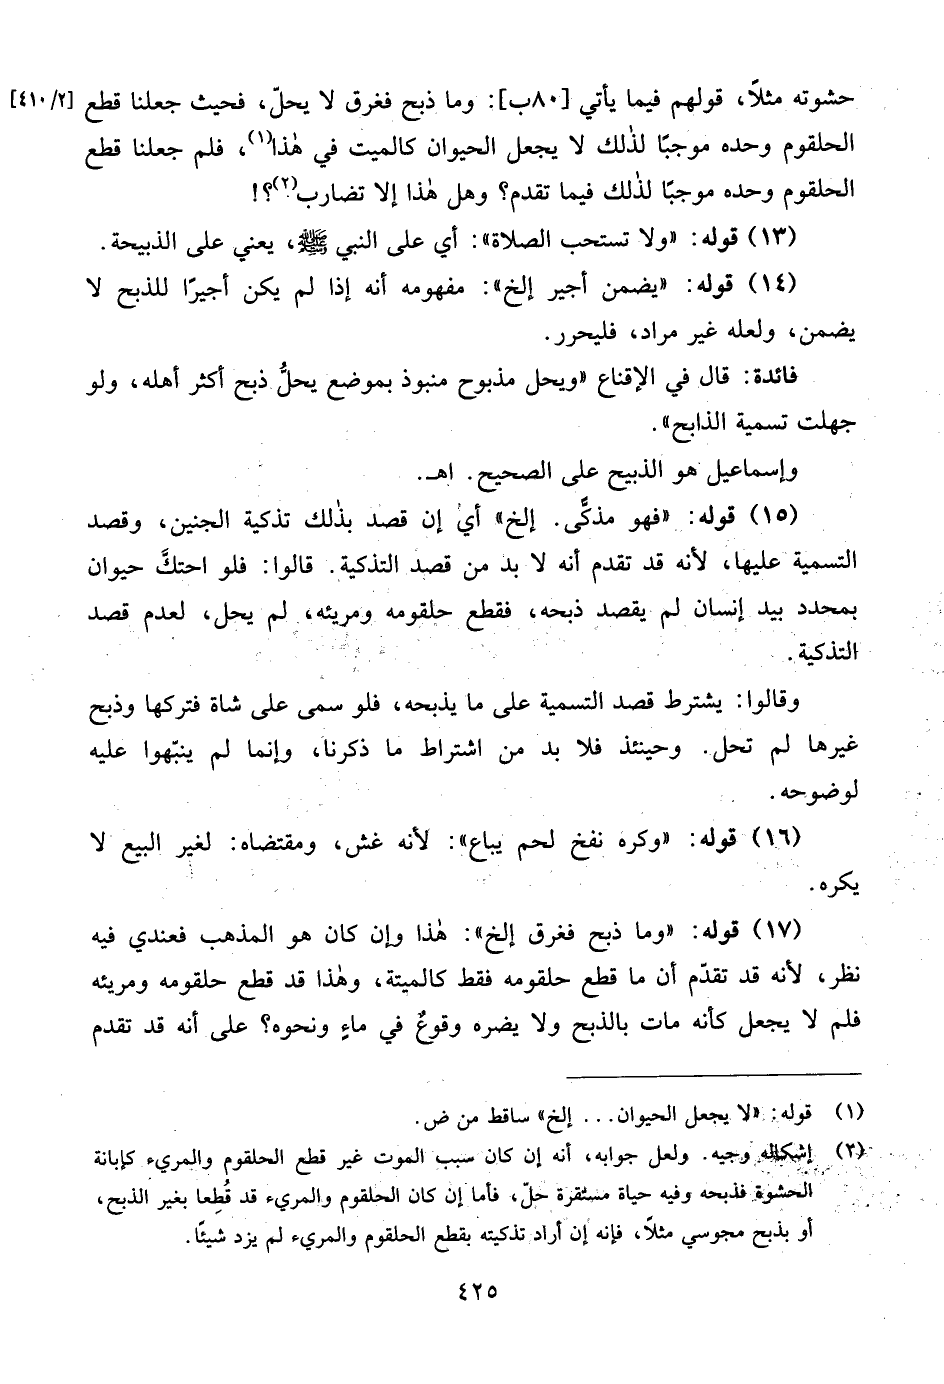 حشوته مثلًا، قولهم فيما يأتي [٨٠ب]: وما ذبح فغرق لا يحلّ، فحيث جعلنا قطع [٤١٠/٢]
الحلقوم وحده موجبًا لذٰلك لا يجعل الحيوان كالميت في هٰذا(١)، فلم جعلنا قطع
الحلقوم وحده موجبًا لذٰلك فيما تقدم؟ وهل هٰذا إلا تضارب(٢)؟!
(١٣) قوله: «ولا تستحب الصلاة»: أي على النبي ﷺ، يعني على الذبيحة.
(١٤) قوله: «يضمن أجير إلخ»: مفهومه أنه إذا لم يكن أجيرًا للذبح لا
يضمن، ولعله غير مراد، فليحرر.
فائدة: قال في الإقناع «ويحل مذبوح منبوذ بموضع يحلُّ ذبح أكثر أهله، ولو
جهلت تسمية الذابح».
وإسماعيل هو الذبيح على الصحيح. اهـ.
(١٥) قوله: «فهو مذكًّى. إلخ» أي إن قصد بذٰلك تذكية الجنين، وقصد
التسمية عليها، لأنه قد تقدم أنه لا بد من قصد التذكية. قالوا: فلو احتكَّ حيوان
بمحدد بيد إنسان لم يقصد ذبحه، فقطع حلقومه ومريئه، لم يحل، لعدم قصد
التذكية.
وقالوا: يشترط قصد التسمية على ما يذبحه، فلو سمى على شاة فتركها وذبح
غيرها لم تحل. وحينئذ فلا بد من اشتراط ما ذكرنا، وإنما لم ينبّهوا عليه
لوضوحه.
(١٦) قوله: «وكره نفخ لحم يباع»: لأنه غش، ومقتضاه: لغير البيع لا
يكره.
(١٧) قوله: «وما ذبح فغرق إلخ»: هٰذا وإن كان هو المذهب فعندي فيه
نظر، لأنه قد تقدّم أن ما قطع حلقومه فقط كالميتة، وهٰذا قد قطع حلقومه ومريئه
فلم لا يجعل كأنه مات بالذبح ولا يضره وقوعٌ في ماءٍ ونحوه؟ على أنه قد تقدم
(١) قوله: «لا يجعل الحيوان... إلخ» ساقط من ض.
(٢) إشكاله وجيه. ولعل جوابه، أنه إن كان سبب الموت غير قطع الحلقوم والمريء كإبانة
الحشوة فذبحه وفيه حياة مستقرة حلّ، فأما إن كان الحلقوم والمريء قد قُطِعا بغير الذبح،
أو بذبح مجوسي مثلًا، فإنه إن أراد تذكيته بقطع الحلقوم والمريء لم يزد شيئًا.
٤٢٥